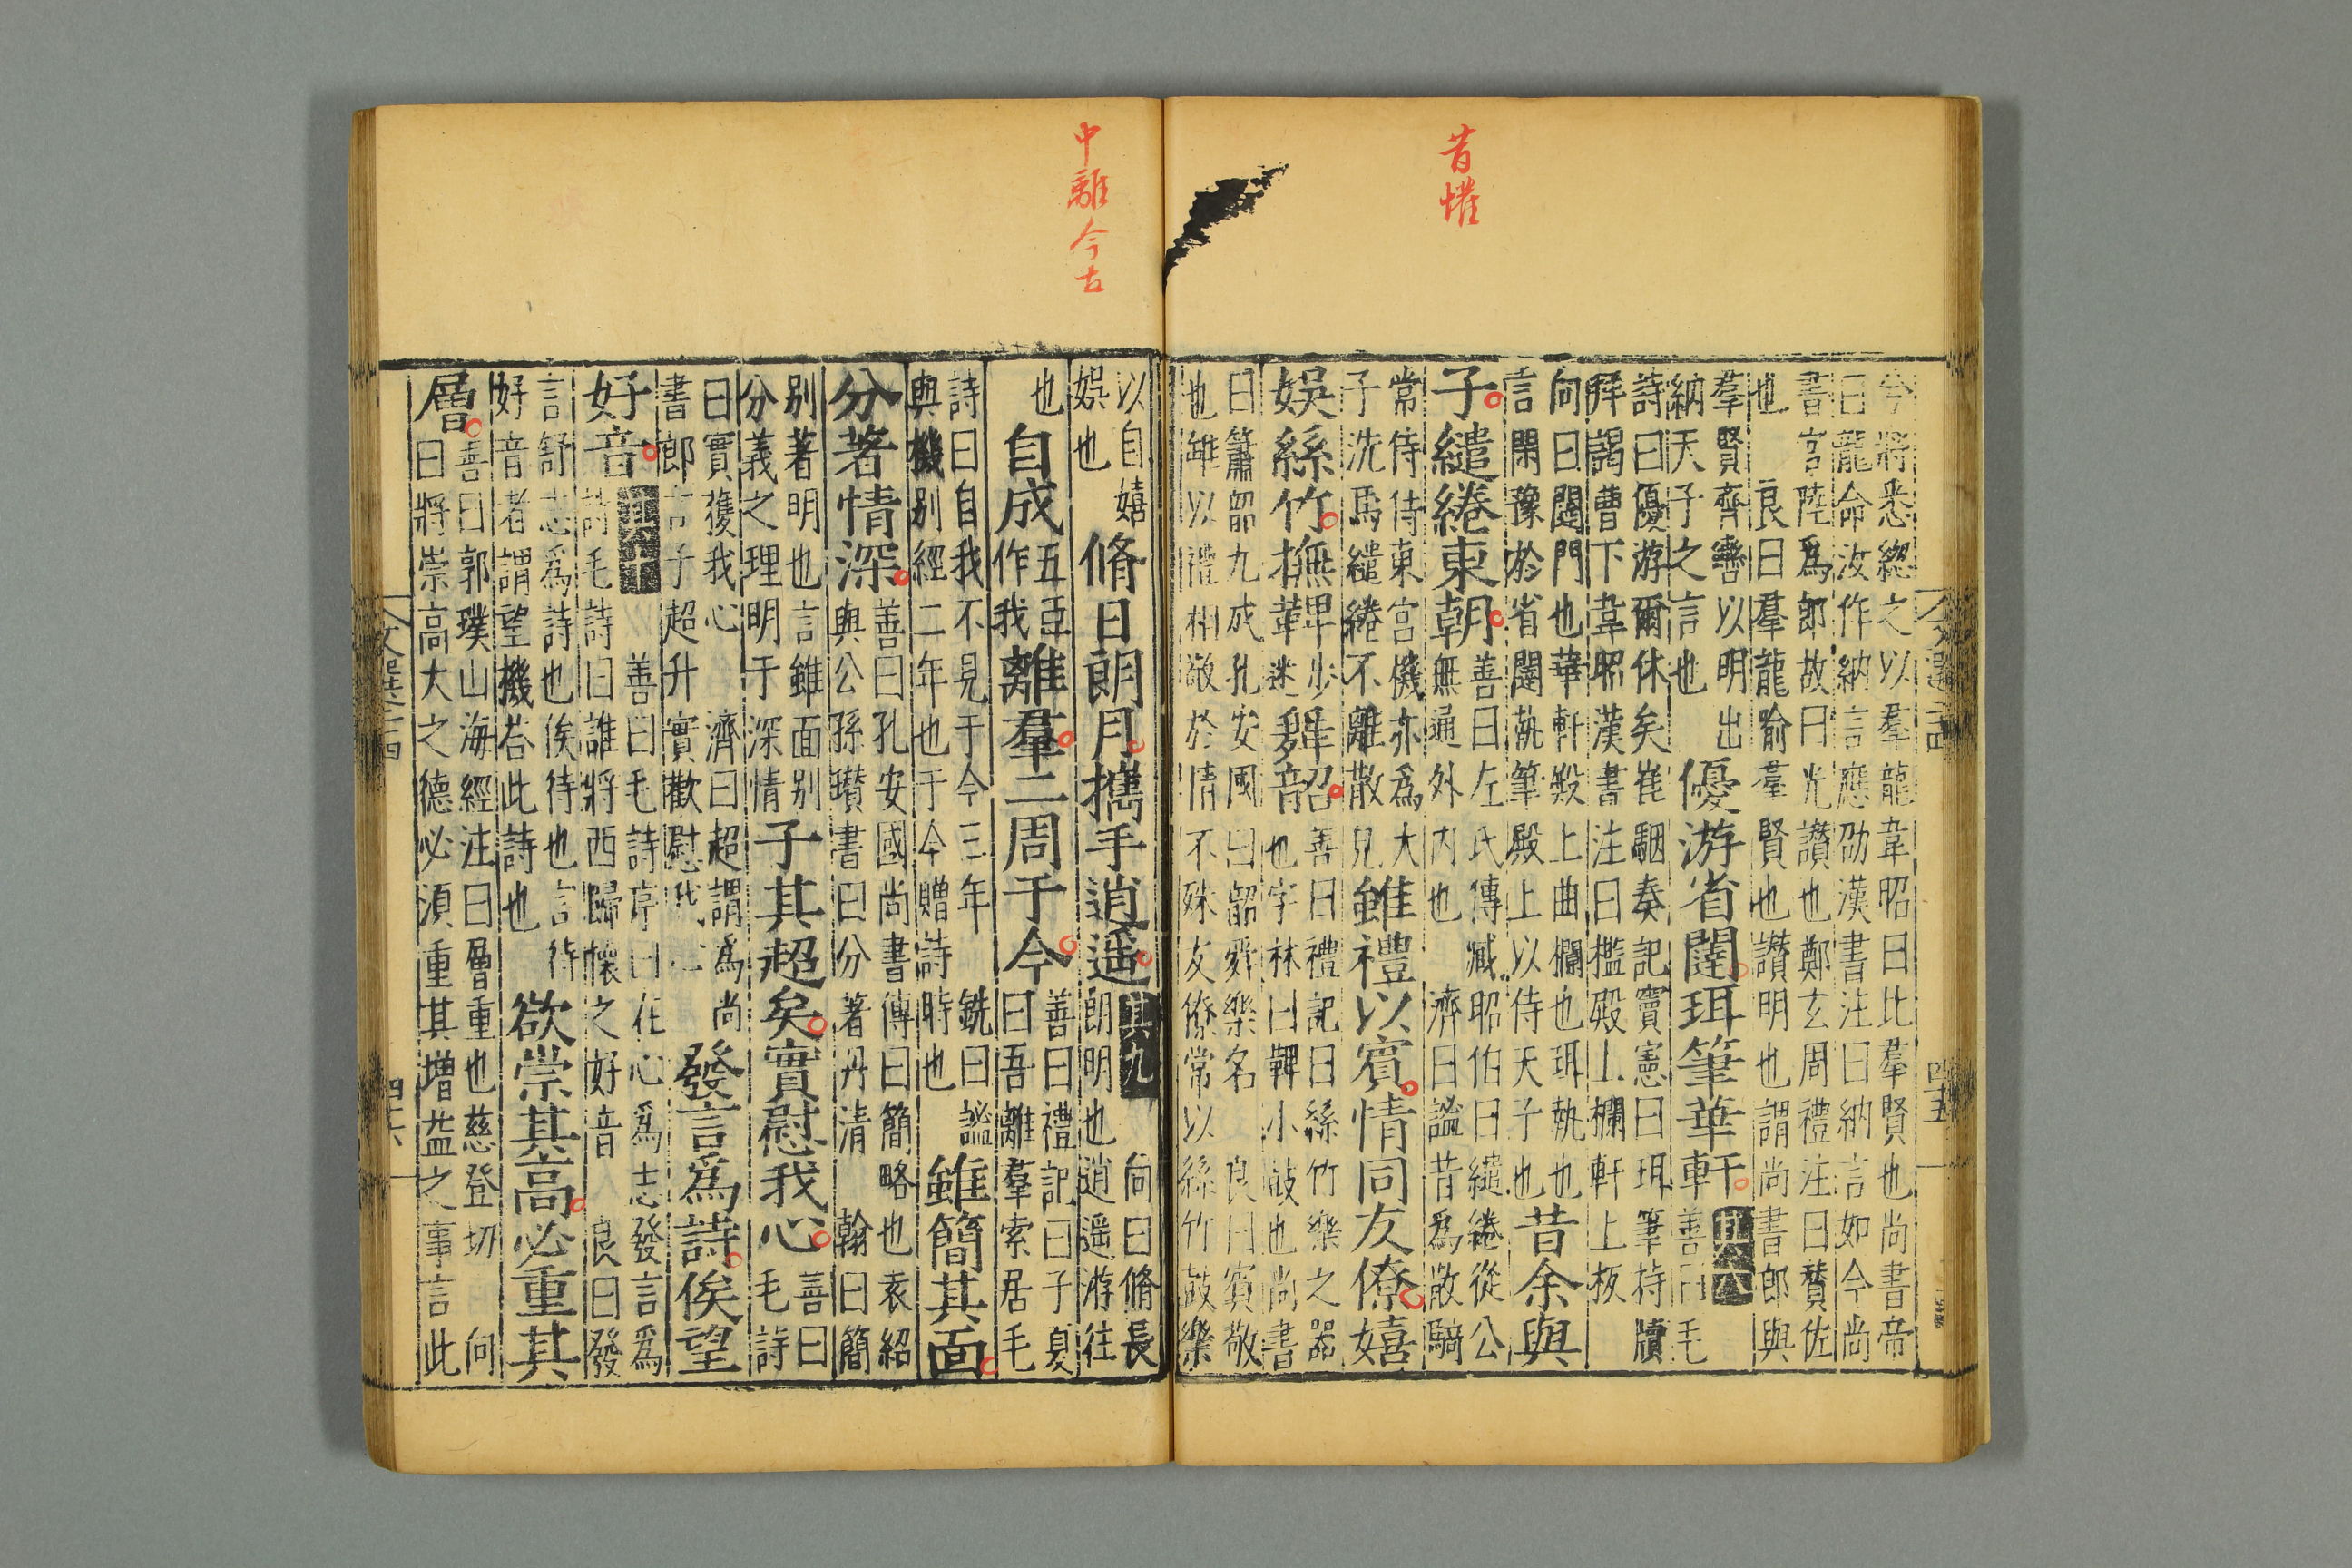 昔懽
今將悉緫之以羣龍韋昭曰比羣賢也尚書帝
曰龍命汝作納言應劭漢書注曰納言如今尚
書官陸爲郎故曰光讃也鄭玄周禮注曰賛佐
也 良曰羣龍喻羣賢也讃明也謂尚書郎與
羣賢齊轡以明出
納天子之言也
優游省闥珥筆華軒
其八
善曰毛
詩曰優游爾休矣崔駰奏記竇憲曰珥筆持牘
拜謁曹下韋昭漢書注曰檻殿上欄軒上板
向曰闥門也華軒殿上曲欄也珥執也
言閑豫於省闥執筆殿上以侍天子也
昔余與
子繾綣東朝
善曰左氏傳臧昭伯曰繾綣從公
無通外内也 濟曰謐昔爲散騎
常侍侍東宫機亦爲大
子洗馬繾綣不離散皃
雖禮以賓情同友僚嬉
娛絲竹撫鞞
步
迷
舞韶
善曰禮記曰絲竹樂之器
也字林曰鞞小鼓也尚書
曰簫韶九成孔安國曰韶舜樂名 良曰賓敬
也雖以禮相敬於情不殊友僚常以絲竹鼓樂
中離今古
以自嬉
娛也
脩日朗月攜手逍遥
其九
向曰脩長
朗明也逍遥游往
也
自成
五臣
作我
離羣二周于今
善曰禮記曰子夏
曰吾離羣索居毛
詩曰自我不見于今三年 銑曰謐
與機别經二年也于今贈詩時也
雖簡其面
分著情深
善曰孔安國尚書傳曰簡略也袁紹
與公孫瓚書曰分著丹清 翰曰簡
别著明也言雖面别
分義之理明于深情
子其超矣實慰我心
善曰
毛詩
曰實獲我心 濟曰超謂爲尚
書郎言子超升實歡慰我心
發言爲詩俟望
好音
其十
善曰毛詩序曰在心爲志發言爲
詩毛詩曰誰將西歸懷之好音 良曰發
言舒志爲詩也俟待也言待
好音者謂望機荅此詩也
欲崇其高必重其
層
善曰郭璞山海經注曰層重也慈登切 向
曰將崇高大之德必須重其增益之事言此
四十六